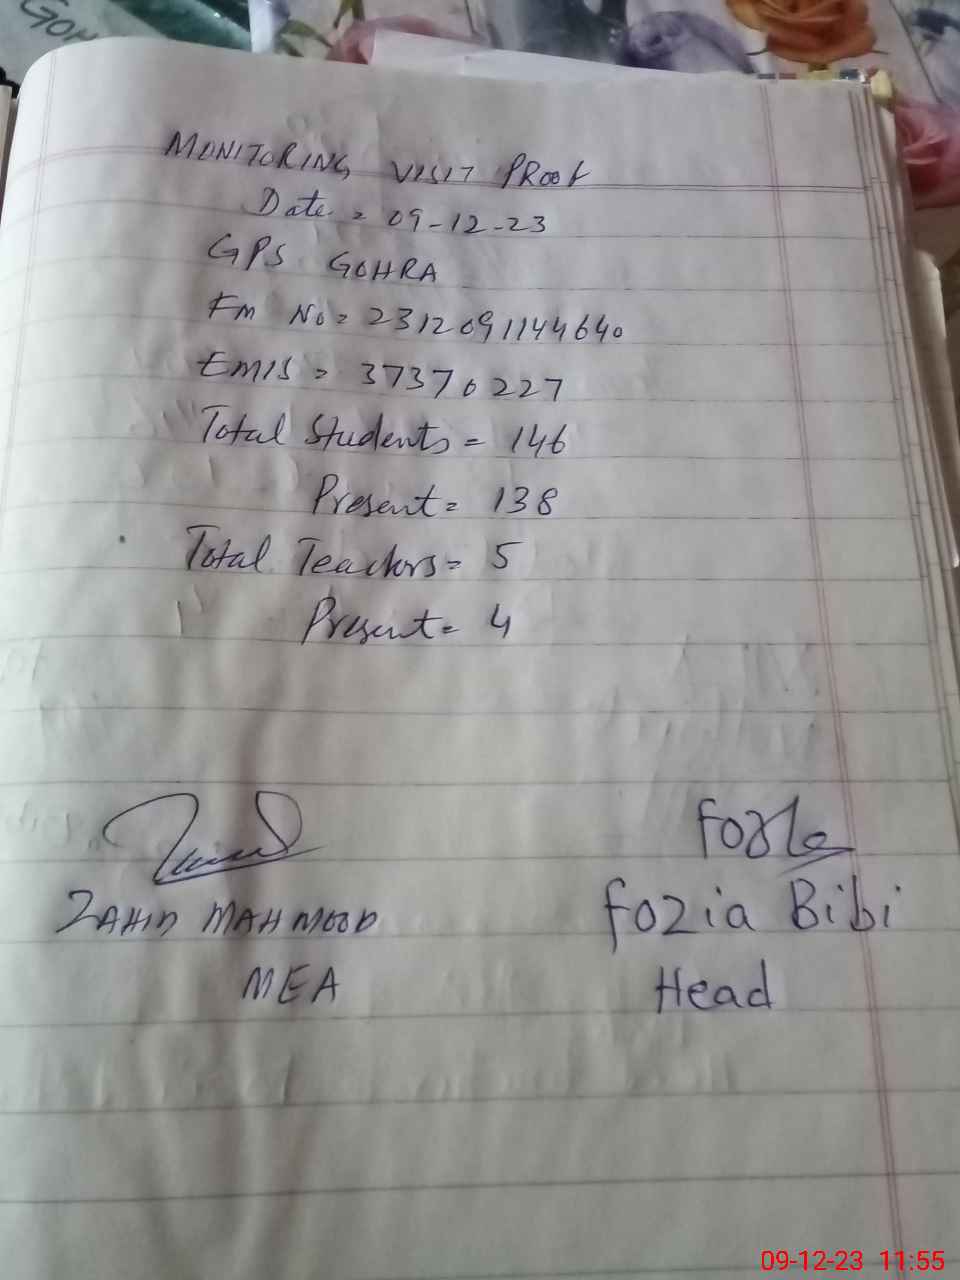 GOH
MONITORING VISIT PROOF
Date = 09-12-23
GPS GOHRA
Fm No = 2312091144640
EMIS = 37370227
Total Students = 146
Present = 138
Total Teachers = 5
Present = 4
ZAHID MAHMOOD
Fozia Bibi
MEA
Head
09-12-23 11:55